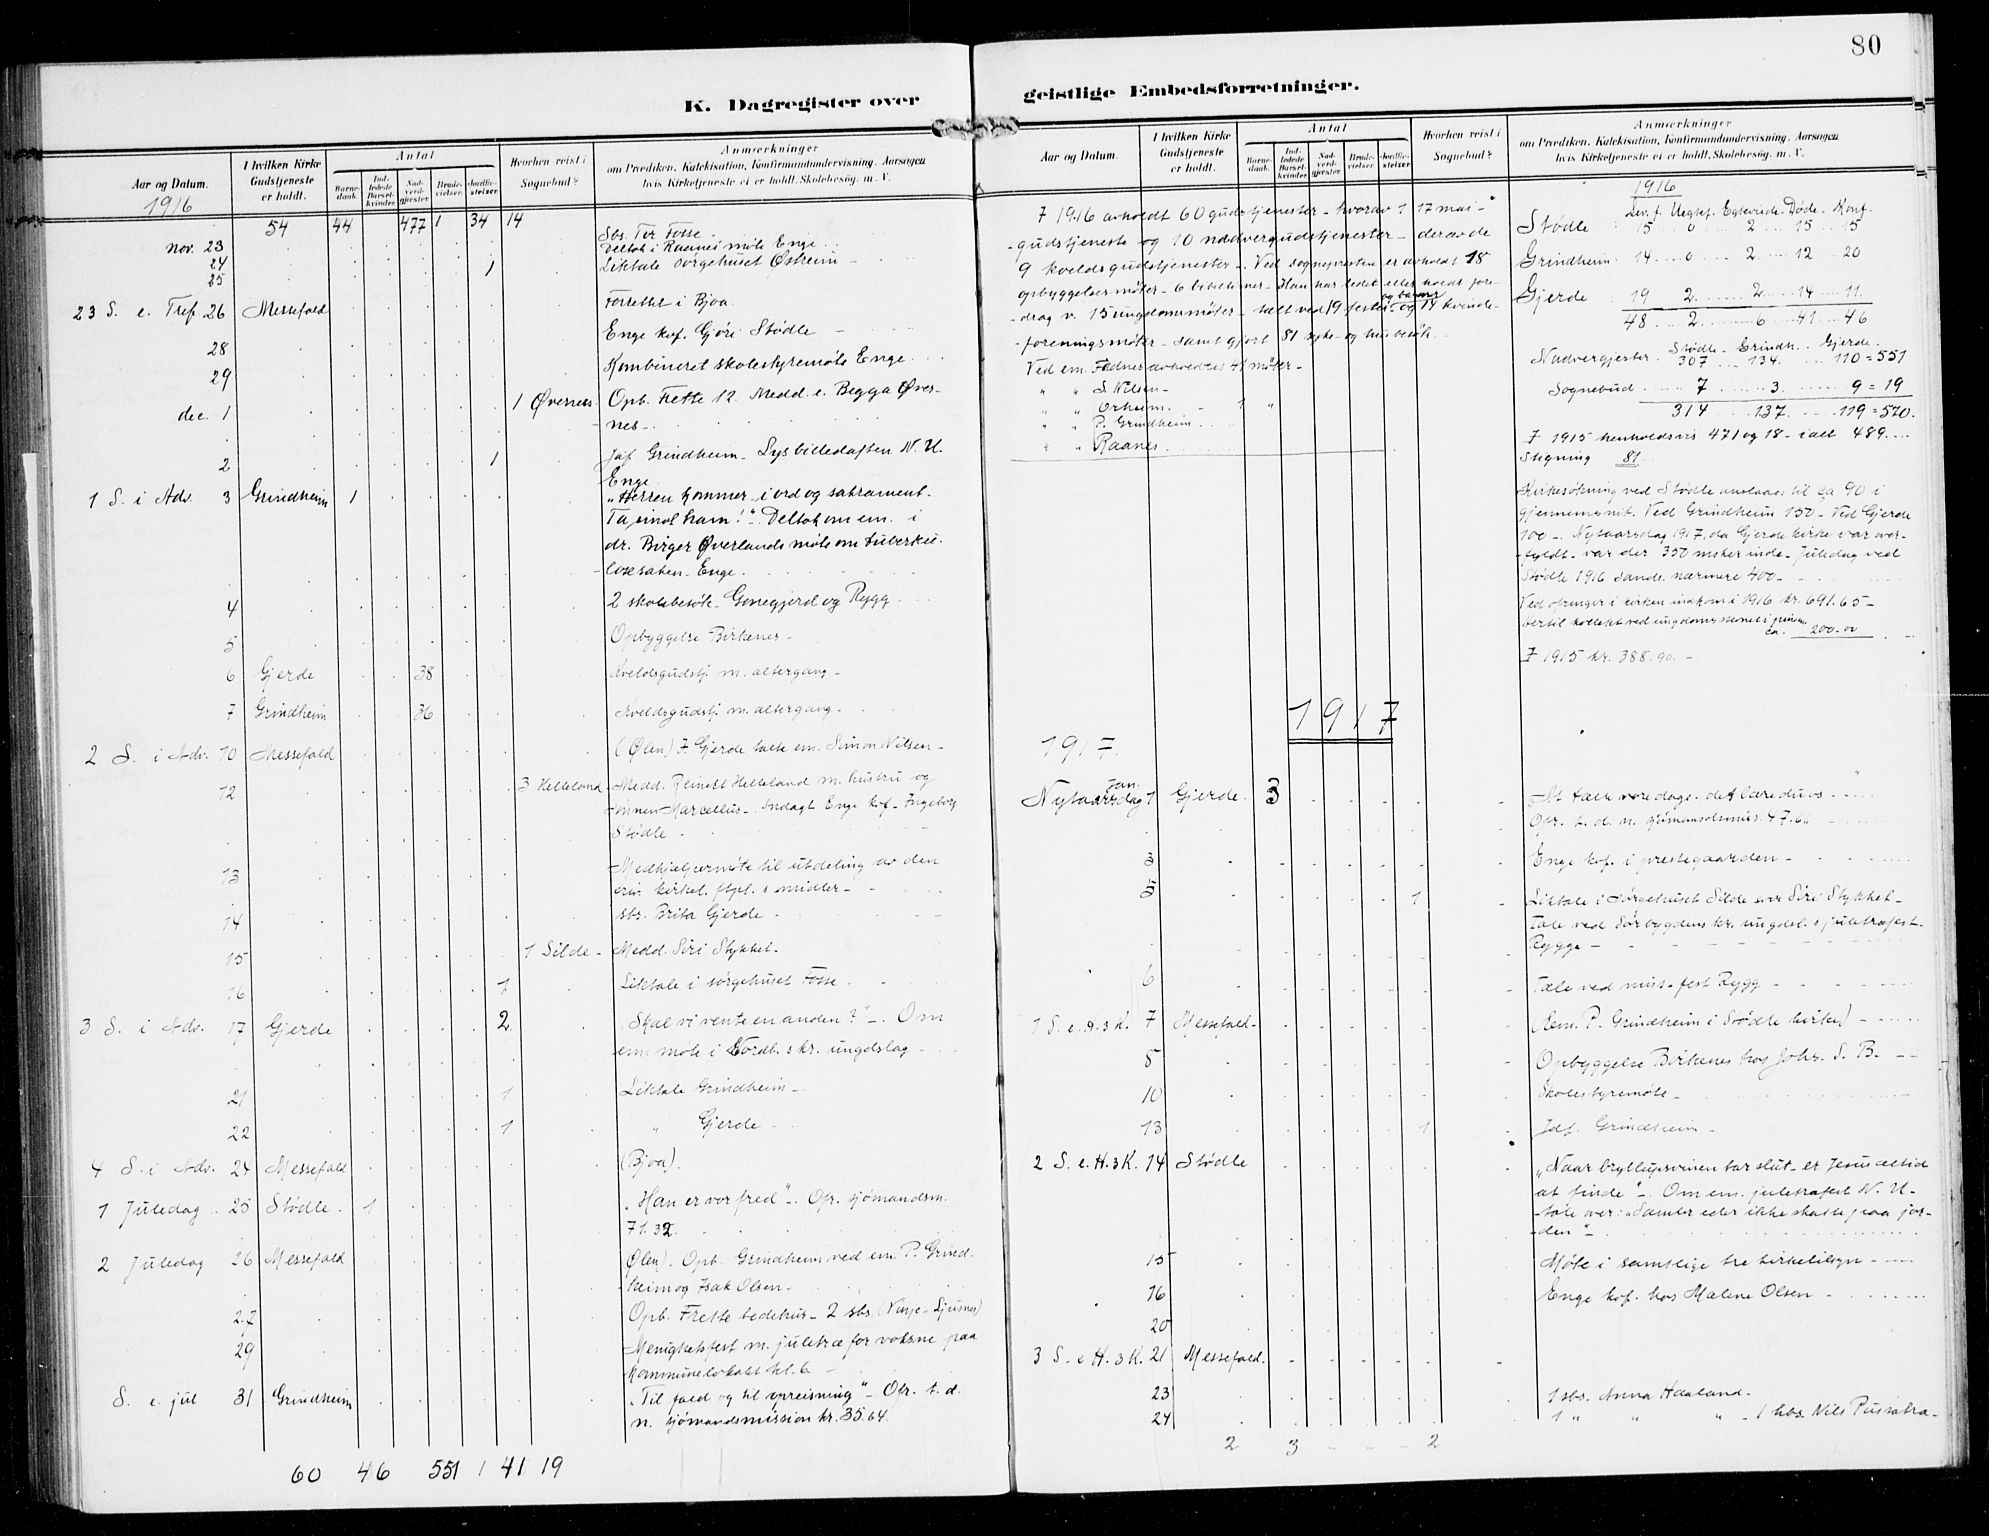 80
K. Dagregister over
Aar og Datum.
I hvilken Kirke Gudstjeneste er holdt.
Antal
Barnedaab.
Indledede Barselkvinder.
Nadverdgjester.
Brudevielser.
Jordfæstelser.
Hvorhen reist i Sognebud?
Anmerkninger
om Prædiken, Katekisation, Konfirmandundervisning, Aarsagen
hvis Kirketjeneste ei er holdt, Skolebesøg, m. V.
1916
54 44 477 1 34 14
Sbs. Tor Fosse -
nov. 23 Deltok i Raanes møte Enge
24 1 Liktale sørgehuset Øsheim -
25
23 S. e. Tref. 26 Messefald Forrettet i Bjoa.
Enge kof. Gjøri Stødle -
28
Kombineret skolestyremøte Enge.
29
1 Øvernes. Opb. Frette 12. Medd. e. Begga Øver-
dec. 1 nes -
2 1 Jdf. Grindheim - Lysbilledaften N. U.
Enge
1 S. i Adv. 3 Grindheim 1 "Herren kommer i ord og sakrament.
Ta imot ham!" Deltok om em. i
dr. Birger Øverlands møte om tuberku-
losesaken - Enge.
4 2 skolebesøk - Gonegjerd og Rygg
5 Opbyggelse Birkenes -
6 Gjerde 38 Kveldsgudstj. m. altergang -
7 Grindheim 36 Kveldsgudstj. m. altergang -
2 S. i Adv. 10 Messefald (Ølen) I Gjerde talte em. Simon Nilsen -
12 3 Helleland Medd. Reinert Helleland m. hustru og
sønnen Marcellius - Indagt Enge kof. Ingeborg
Stødle -
13 Medhjelpermøte til utdeling av den
kirkel. ftpl.s midler -
14 sbs. Brita Gjerde -
15 1 Silde - Medd. Siri Stykket -
16 1 Liktale i sørgehuset Fosse -
3 S. i Adv. 17 Gjerde 2 "Skal vi vente en anden?" - Om
em. møte i Nordb.s kr. ungdslag -
21 1 Liktale Grindheim -
22 1 " Gjerde -
4 S. i Adv. 24 Messefald (Bjoa).
1 Juledag 25 Stødle 1 "Han er vor fred" - Ofr. sjømandsm.
71.32.
2 Juledag 26 Messefald (Ølen). Opb. Grindheim ved em. P. Grind-
heim og Isak Olsen -
27 Opb. Frette bedehus - 2 sbs.
29 Menighetsfest m. juletræ for voksne paa
kommunelokalet kl. 6 -
S. e. jul 31 Grindheim "Til fald og til opreisning" - Ofr. t. d.
n. sjømandsmission kr. 35.64.
60 46 551 1 41 19
geistlige Embedsforretninger.
Aar og Datum.
I hvilken Kirke Gudstjeneste er holdt.
Antal
Barnedaab.
Indledede Barselkvinder.
Nadverdgjester.
Brudevielser.
Jordfæstelser.
Hvorhen reist i Sognebud?
Anmærkninger
om Prædiken, Katekisation, Konfirmandundervisning, Aarsagen
hvis Kirketjeneste ei er holdt, Skolebesøg, m. V.
I 1916 avholdt 60 gudstjenester - hvorav 1 17 mai-
-gudstjeneste og 10 nadvergudstjenester - derav de
9 kveldsgudstjenester - Ved sognepresten er avholdt 18
opbyggelsesmøter - 6 bibeltimer - Han har ledet eller holdt fore-
drag v. 15 ungdomsmøter - talt ved 19 fester og basarer og 14 kvinde-
foreningsmøter - samt gjort 81 syke- og husbesøk -
Ved em. Fadnes avholdtes 41 møter -
" " S. Nilsen -
" " Orheim - 1 "
" " P. Grindheim
" " Raanes
1916
Lev. f. Uegtef. Egteviede. Døde. Konf.
Stødle 15 0 2 15 15
Grindheim 14 0 2 12 20
Gjerde 19 2 2 14 11
48 2 6 41 46
Stødle. Grindh. Gjerde.
Nadvergjester 307 134 110 = 551
Sognebud 7 3 9 = 19
314 137 119 = 570.
I 1915 henholdsvis 471 og 18 - i alt 489
Stigning 81
Kirkesøkning ved Stødle anslaaes til ca 90 i
gjennemsnit. Ved Grindheim 150 - Ved Gjerde
100 -. Nytaarsdag 1917, da Gjerde kirke var over-
fyldt - var der 350 msker inde - Juledag ved
Stødle 1916 sands. nærmere 400 -
Ved ofringer i kirken indkom i 1916 kr. 691.65 -
hertil kollekt ved
ca. 200.00
I 1915 kr. 388.90 -
1917
1917.
Nytaarsdag Jan. 1 Gjerde 3 "At tælle vore dage - det lære du os -
Ofr. t. d. n. sjømandsmis. 47.66
3 Enge kof. i prestegaarden -
5 1 Liktale i sørgehuset Silde over Siri Stykket -
Tale ved Sørbygdens kr. ungdsl.s juletræfest -
Rygge -
6 Tale ved miss.fest Rygg
1 S. e. H. 3 K. 7 Messefald - (Em. P. Grindheim i Stødle kirke)
8 Opbyggelse Birkenes hos Johs. S. B. -
10 Skolestyremøte -
13 1 Jdf. Grindheim -
2 S. e. H. 3 K. 14 Stødle "Naar bryllupsvinen tar slut - er Jesus altid
at finde" - Om em. juletræfest N. U -
tale over: "Samler eder ikke skatte paa jor-
den" -
15 Møte i samtlige tre kirketilsyn -
16 Enge kof. hos Malene Olsen -
20
3 S. e. H. 3 K. 21 Messefald.
23 1 sbs. Anna Haaland -
24 1 " " " - 1 hbs. Nils
2 3 - - - 2